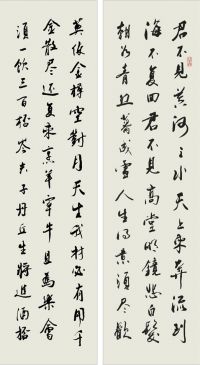 君不見黃河之水天上來奔流到
海不復回君不見高堂明鏡悲白髮
朝如青絲暮成雪人生得意須盡歡
莫使金樽空對月天生我材必有用千
金散盡還復來烹羊宰牛且為樂會
須一飲三百杯岑夫子丹丘生將進酒杯